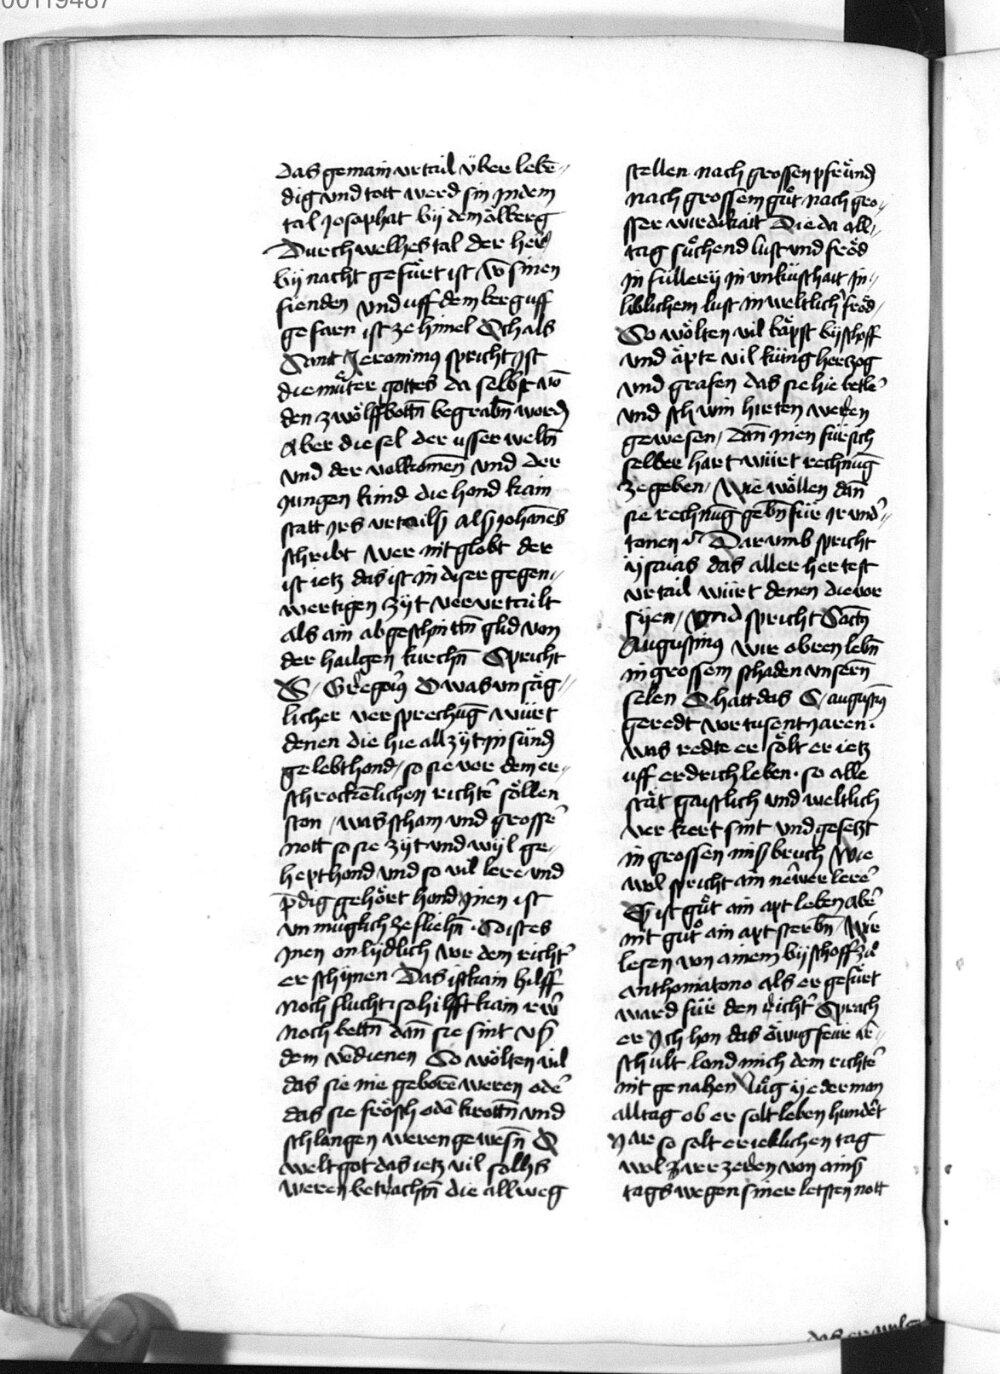 00119487
das gemain urtail über lebē-
dig und tott werd sin in dem
tal Josaphat bij dem ölberg
Durch welhes tal der her
bij nacht gefürt ist vō sinen
fienden und uff dem berg uff
gefaren ist ze himel Och als
Sant Jeronimus spricht Ist
die můter gottes da selbst vō
den zwölffbottn̄ begrabn̄ word
Aber die sel der usser weltn̄
und der volkomen̄ und der
jungen kind die hond kain
statt jrs urtails Als johānes
schribt wer nit globt der
ist ietz das ist in diser gegen-
wertigen zijt verurtailt
als ain abgeschnittn̄ glid von
der hailgen kirchn̄ Spricht
S. Gregoriꝰ O was unsäg-
licher versprechūg würt
denen die hie all zijt in sünd
gelebt hond, so sie vor dem er-
schrockēlichen richtē söllen
ston, was scham und grosse
nott so sie zijt und wijl ge-
hept hond und so vil lere und
p̄dig gehört hond Inen ist
un müglich ze fliehn̄. So ist es
Inen onlijdlich vor dem richt
er schijnen Das ist kain hilff
noch flucht, so hilfft kain rw̄
noch bettn̄ dan̄ sie sint uß
dem v̄dienen So wölten vil
das sie nie geborē weren odē
das sie frösch odē krottn̄ und
schlangen weren gewesn̄ O
welt got das ietz vil sollhs
weren betrachtn̄ die allweg
stellen nach grossen pfründ
nach grossem gůt nach gro-
sser wirdikait Die da all-
tag sůchend lust und fröd
in füllerij in unküschait in-
liblichem lust in weltlichr̄ fröd-
So wölten vil bäpst bijschoff
und äpte vil küng herzog
und grafen das sie hie betlē
und schwin hirten weren
gewesen, dan̄ inen für sich
selber hart würt rechnūg
ze geben, Wie wöllen dan̄
sie rechnūg gebn̄ für ir undˀ-
tonen Darumb spricht
ijsaias das aller hertest
urtail würt denen die vor
sijen, Und spricht Sact̄ꝰ
Augustinꝰ wir obren lebn̄
in grossem schaden unsern̄
selen O hatt das S. augustꝰ
geredt vor tusent jaren.
was redte er sölt er ietz
uff erdrich leben. so alle
stät gaistlich und weltlich
verkert sint und gesetzt
in grossen miß bruch Wie
wol spricht ain newer lerē
Es ist gůt ain apt leben abē
nit gůt ain apt sterbn̄. Wir
lesen von ainem bijschoff zů
anthomatono als er gefürt
ward für den richtˀ Sprach
er Ich hon das öwig feür vˀ-
schult lond mich dem richtē
nit genahen Lůg ijederman
alltag ob er solt leben hundˀt
jar so solt er ieklichen tag
wol zwerzeren von ains
tags wegen siner letsten nott